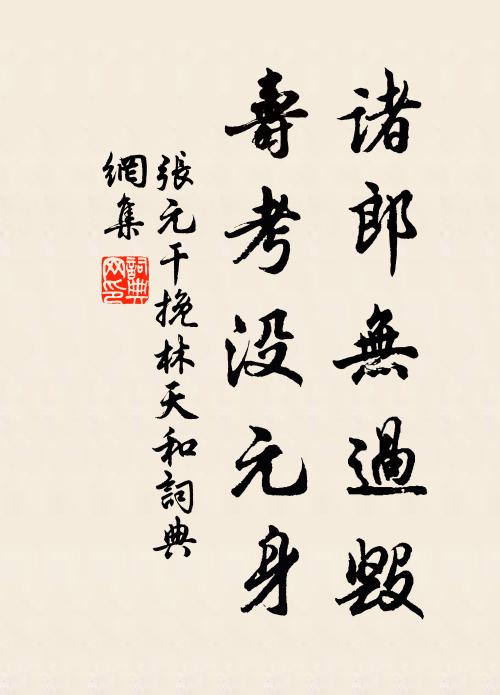 诸郎無過毁
壽考没元身
張元干挽林天和詞典
網集
詞典
网印